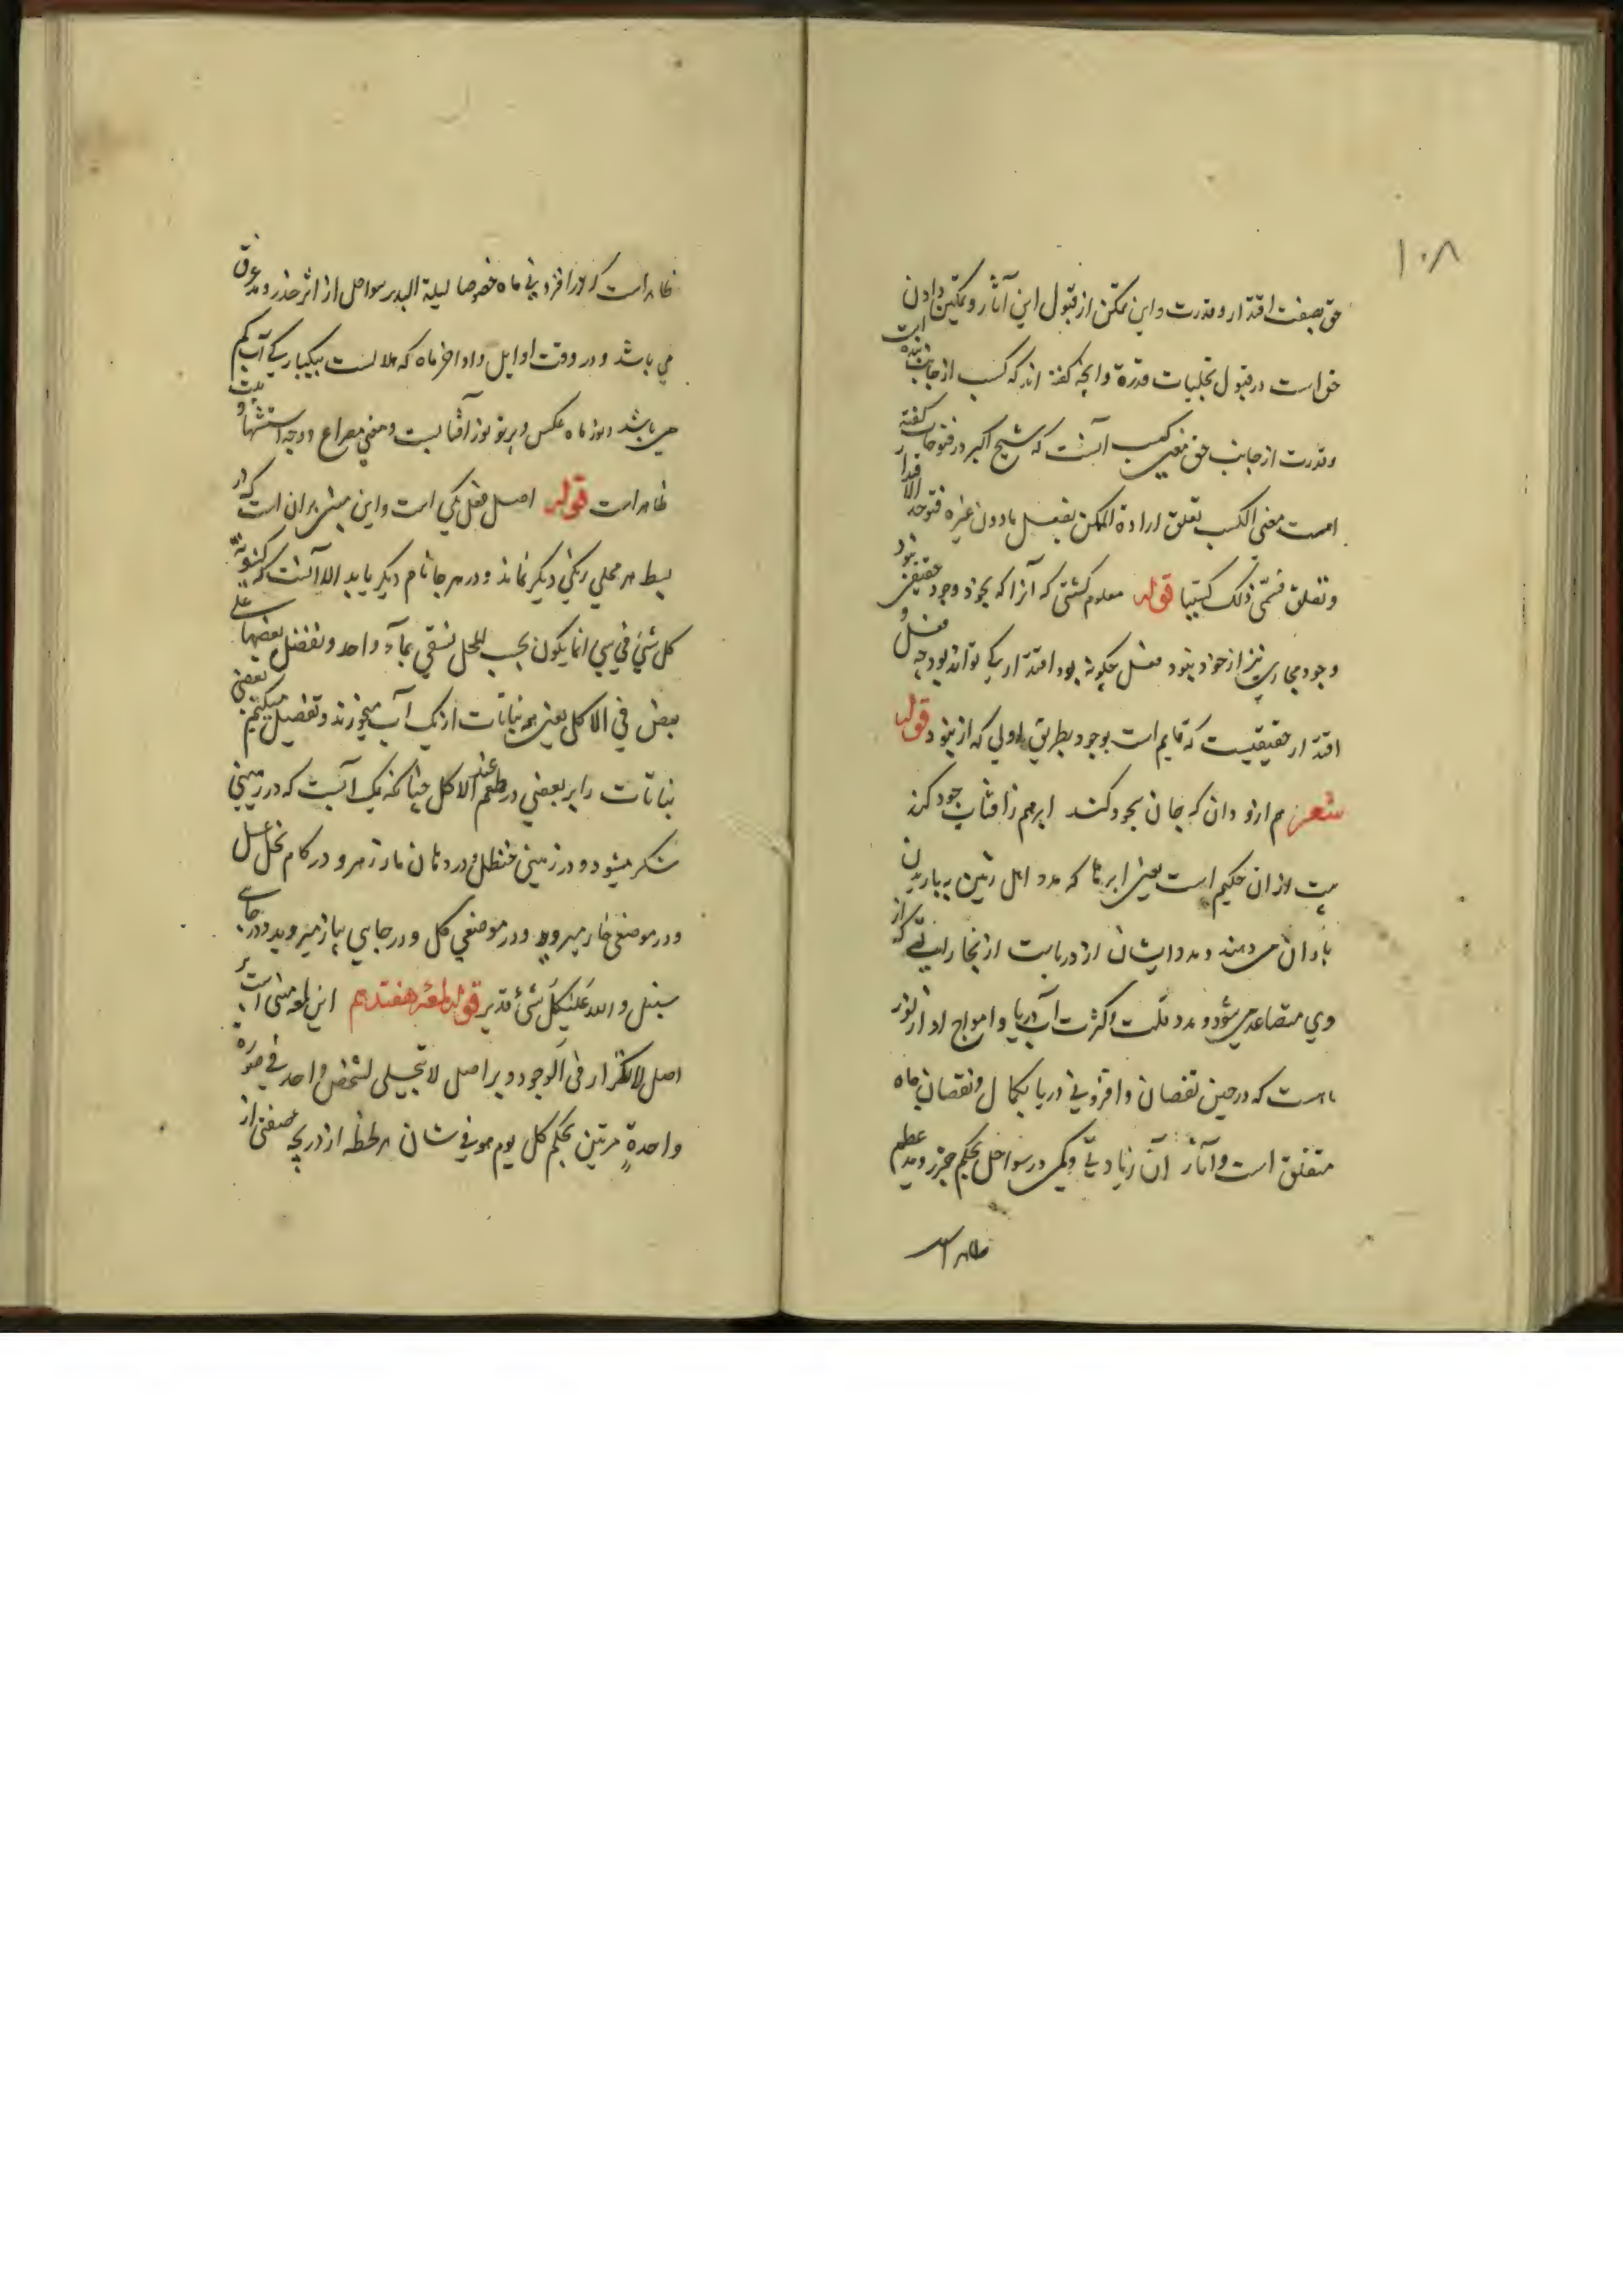 ۱۰۸
حق بصفت اقتدار و قدرت و این تمکن از قبول این آثار و تمکین دادن
حق است در قبول تجلیات قدرة و آنچه گفته اند که کسب از جانب بنده است
و قدرت از جانب حق معنی کسب آنست که شیخ اکبر در فتوحات گفته
است معنی الکسب تعلق ارادة الممکن بفعل ما دون غیره فتوجد الاقتدار
و تعلق فسمّی ذلک کسبا قوله معلوم کشتی که آنرا که بخود وجود حقیقی نبود
وجود مجازی نیز از خود نبود فعل چکونه بود اقتدار کی تواند بود چه فعل و
اقتدار حقیقیست که قایم است بوجود بطریق اولی که ازو نبود قوله
شعر هم ازو دان که جان بجود کند ابر هم ز آفتاب جود کند
بیت از ان حکیم است یعنی ابرها که مدد اهل زمین بباریدن
باران می دهند و مدد ایشان از دریاست از بخاراتی که از
وی متصاعد می شود و مدد قلت و کثرت آب دریا و امواج او از نور
ماه است که در حین نقصان و افزونی دریا بکمال و نقصان ماه
متعلق است و آثار آن زیادتی و کمی در سواحل بحکم جزر و مد عظیم
ظاهر است
ظاهر است که در افزونی ماه خصوصا لیلة البدر سواحل از اثر جذر و مد غرق
می باشد و در وقت اوایل و اواخر ماه که هلالست بیکبارکی آب کم
می باشد و نور ماه عکس و پرتو نور آفتابست و معنی مصراع و وجه استشهاد بیت
ظاهر است قوله اصل فعل یکی است و این مبنی بر ان است که از
بسط هر محلی رنکی دیکر نماید و در هر جا نام دیکر یابد الا آنست که کینونة
کل شیء فی شیء انما یکون بحسب المحل تسقی بماء واحد و نفضل بعضها علی
بعض فی الاکل یعنی همه نباتات از یک آب میخورند و تفضیل میکنیم بعضی
نباتات را بر بعضی در طعم عند الاکل چنانکه یک آبست که در زمینی
شکر میشود و در زمینی حنظل و در دهان مار زهر و در کام نحل عسل
و در موضعی خار میروید و در موضعی کل و در جایی پیاز میروید و در جای
سنبل و الله علی کل شیء قدیر قوله لمعهٔ هفتدهم این لمعه مبنی است بر
اصل لا تکرار فی الوجود و بر اصل لا تجلی لشخص واحد فی صورة
واحدة مرتین بحکم کل یوم هو فی شان هر لحظه از دریچه صفتی از